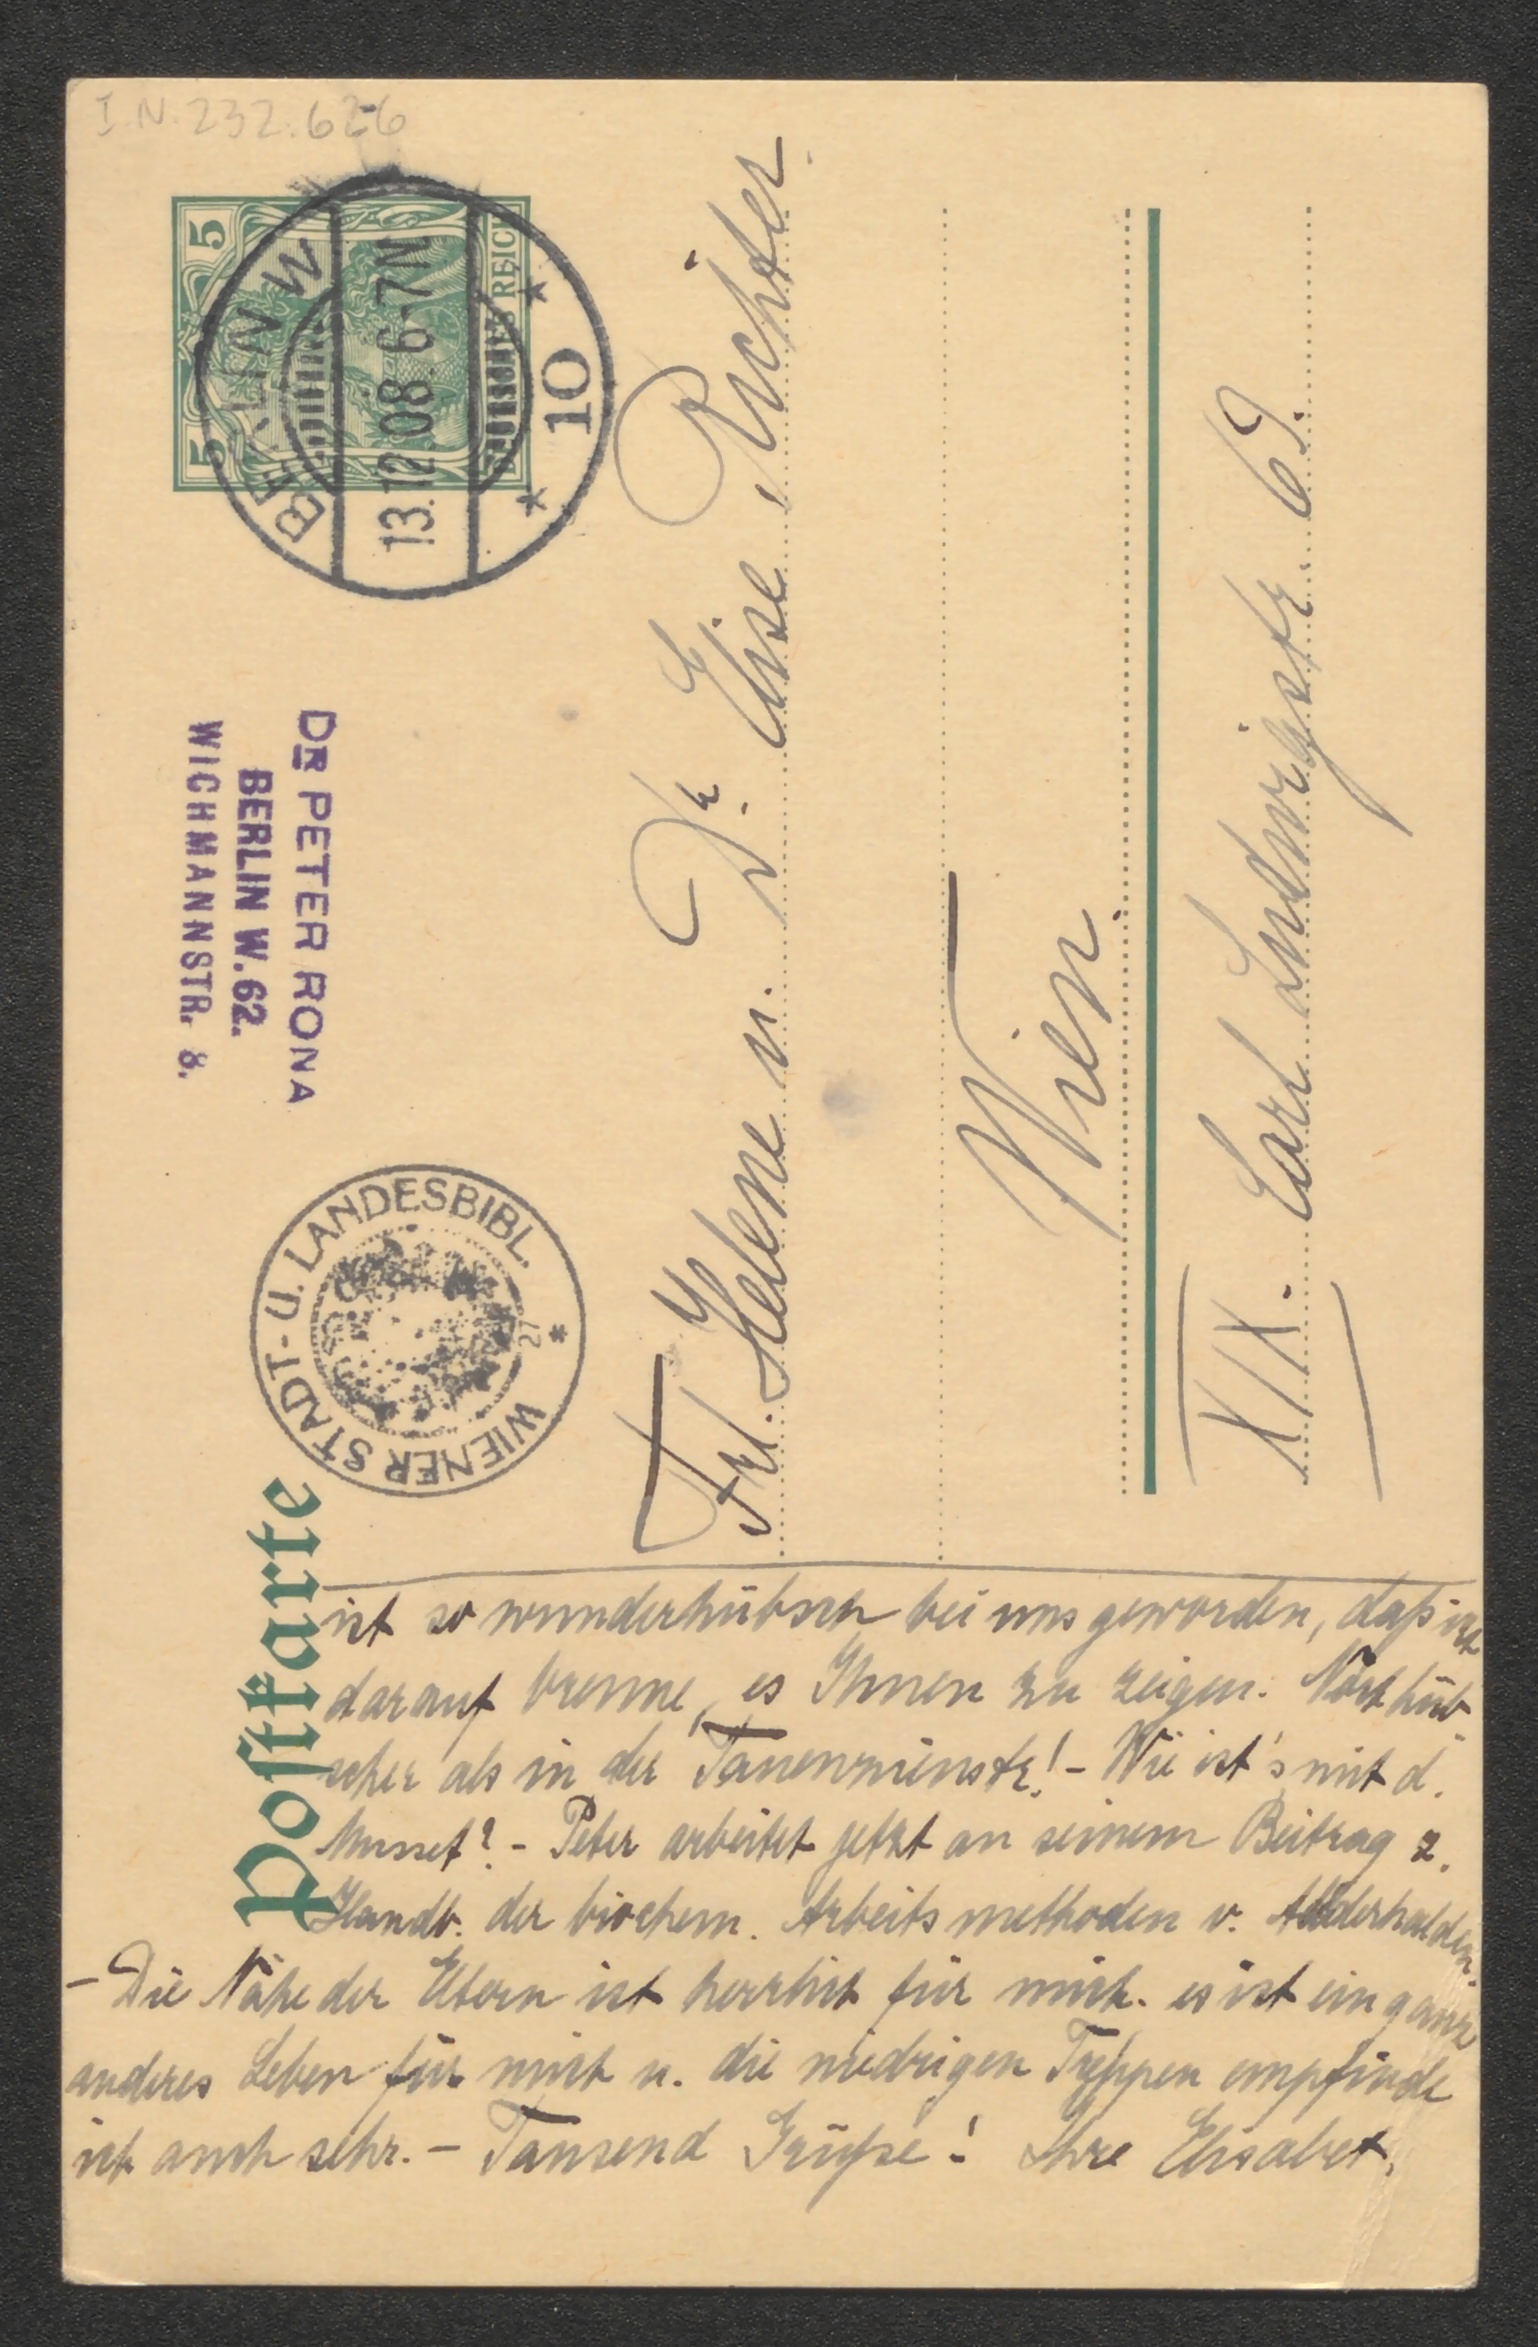 I.N. 232.626
Postkarte
5 5
DEUTSCHES REICH
BERLIN W
13.12.08. 6-7N
* 10 *
DR PETER RONA
BERLIN W. 62.
WICHMANNSTR. 8.
WIENER STADT- U. LANDESBIBL.
27
Frl. Helene u. Dr. Elise Richter
Wien
XIX. Carl Ludwigstr. 69.
ist so wunderhübsch bei uns geworden, daß ich
darauf brenne, es Ihnen zu zeigen. Noch hüb
scher als in der Tauenzienstr! - Wie ist's mit d.
Musset? - Peter arbeitet jetzt an seinem Beitrag z.
Handb. der biochem. Arbeitsmethoden v. Abderhalden.
- Die Nähe der Eltern ist herrlich für mich. es ist ein ganz
anderes Leben für mich u. die niedrigen Treppen empfinde
ich auch sehr. - Tausend Grüße! Ihre Elisabet.